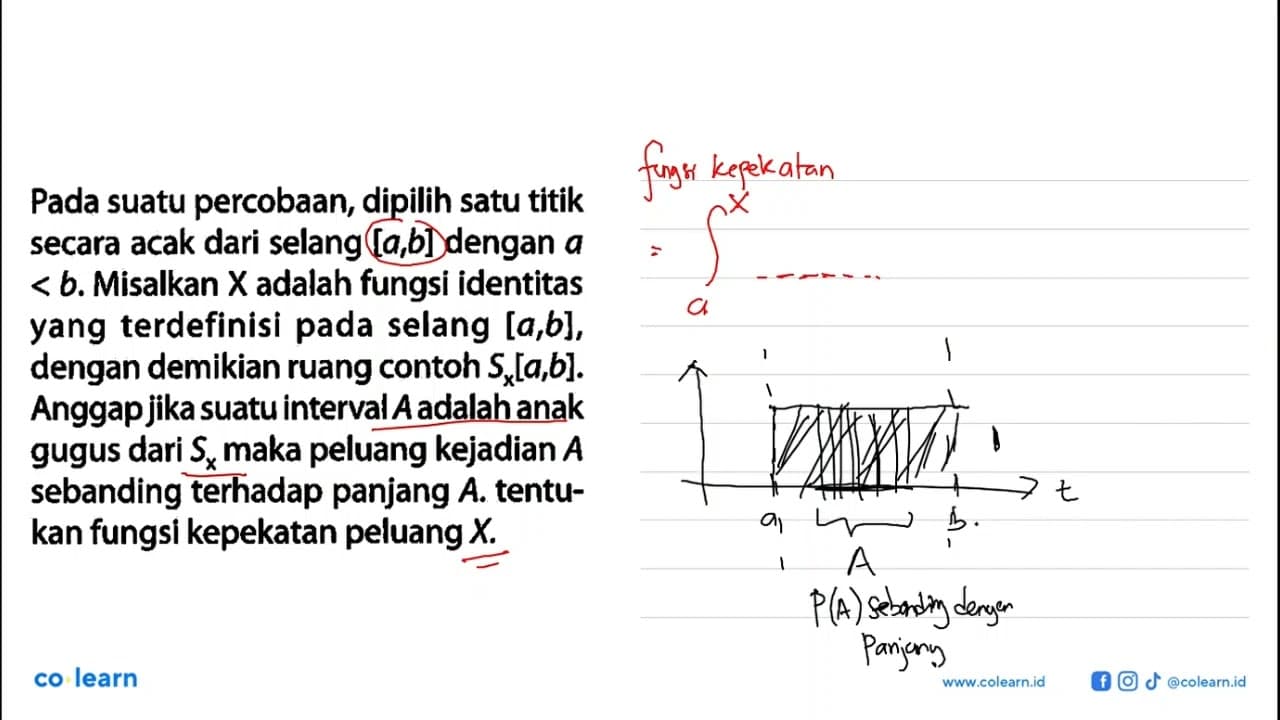 Pada suatu percobaan, dipilih satu titik
secara acak dari selang [a,b] dengan a
< b. Misalkan X adalah fungsi identitas
yang terdefinisi pada selang [a,b],
dengan demikian ruang contoh Sₓ[a,b].
Anggap jika suatu interval A adalah anak
gugus dari Sₓ maka peluang kejadian A
sebanding terhadap panjang A. tentu-
kan fungsi kepekatan peluang X.
fungsi kepekatan
= ∫ X
a
t
a b.
A
P(A) sebanding dengan
Panjang
co learn
www.colearn.id @colearn.id